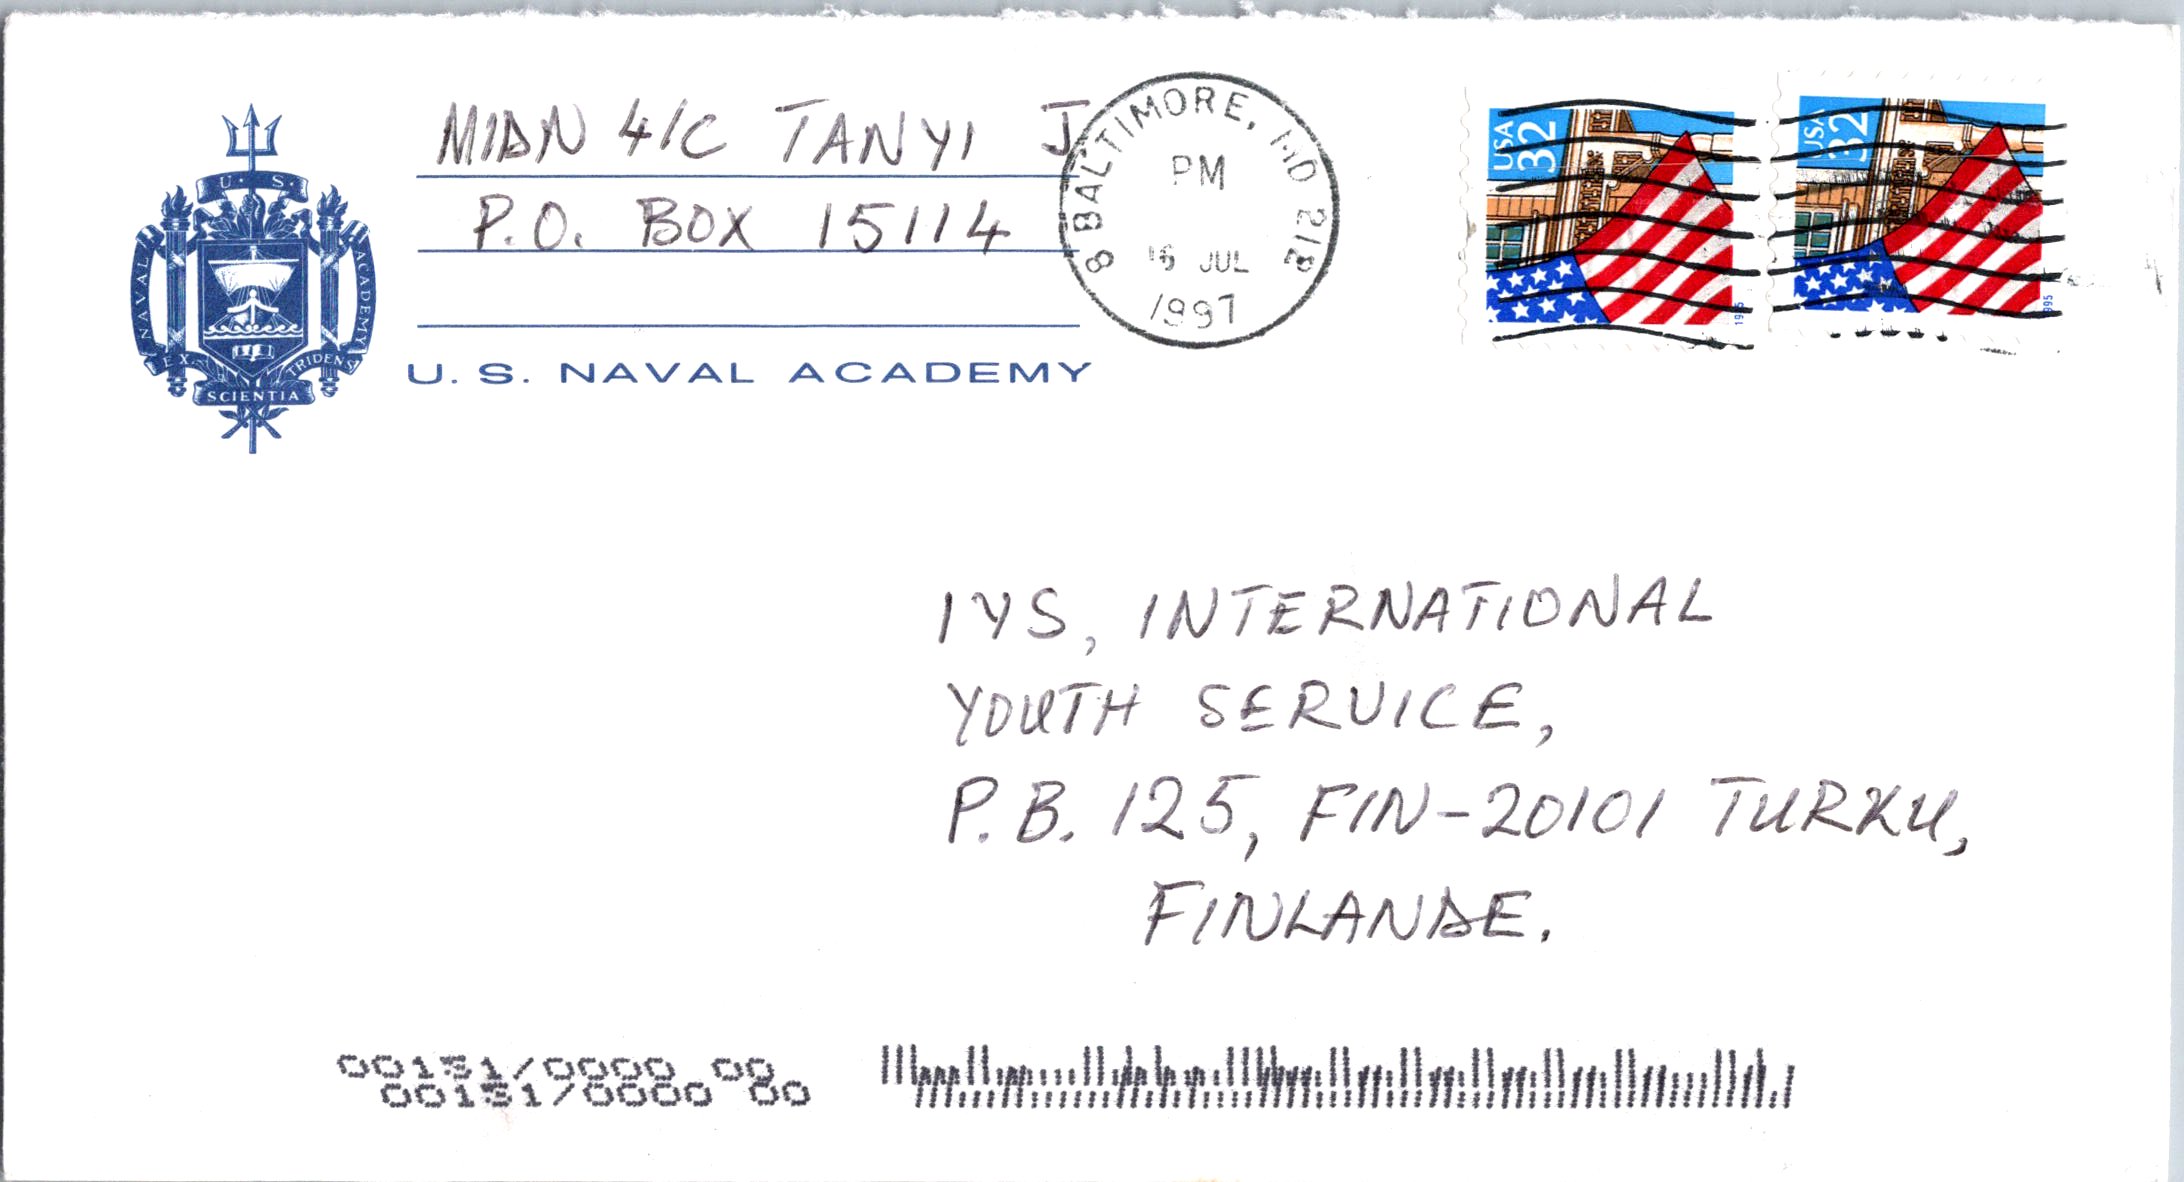 MIDN 4/C TANYI J
P.O. BOX 15114
U.S. NAVAL ACADEMY
U. S.
NAVAL
ACADEMY
EX
SCIENTIA
TRIDENS
8 BALTIMORE, MD 212
PM
16 JUL
1997
USA
32
1995
USA
32
1995
IYS, INTERNATIONAL
YOUTH SERVICE,
P.B. 125, FIN-20101 TURKU,
FINLANDE.
00131/0000 00
00131/0000 00